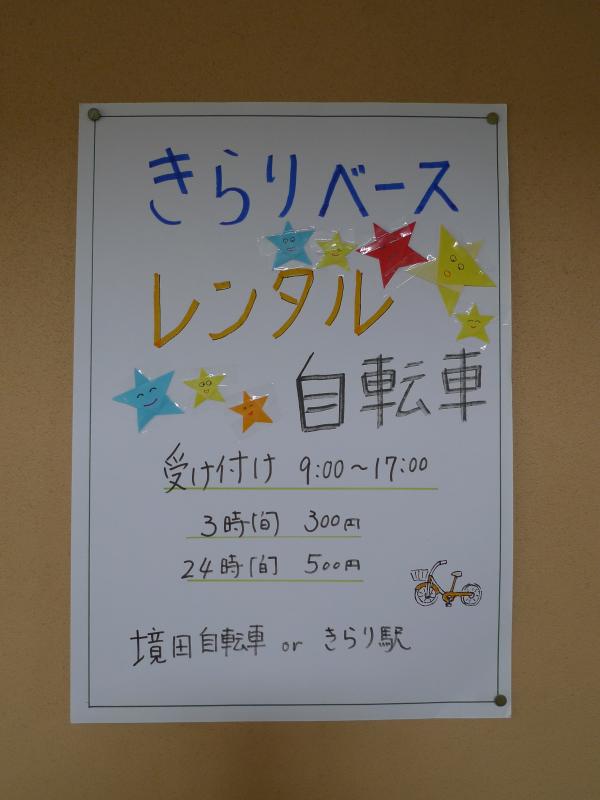 きらりベース
レンタル
自転車
受け付け 9:00～17:00
3時間 300円
24時間 500円
境田自転車 or きらり駅